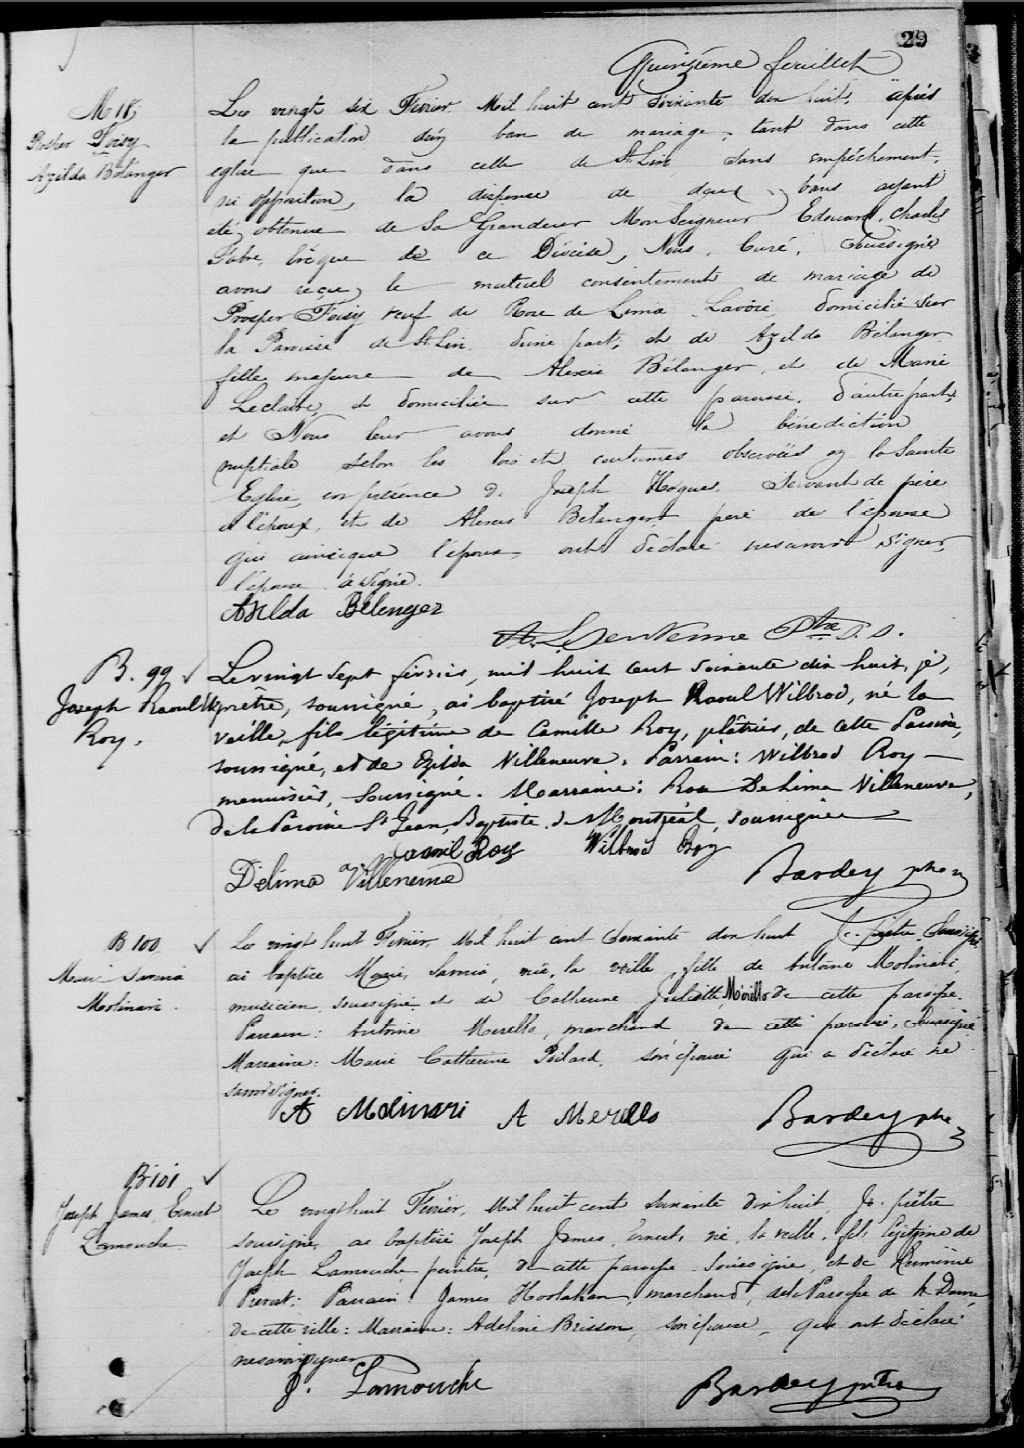 29
Quinzième feuillet
M 18
Prosper Foisy
Azilda Bélanger
Le vingt six Fevrier Mil huit cent soixante dix huit, après
la publication d'un ban de mariage, tant dans cette
eglise que dans celle de St. Lin sans empêchement,
ni opposition, la dispense de deux bans ayant
été obtenue de Sa Grandeur Mon Seigneur Edouard Charles
Fabre, Evêque de ce Diocèse, Nous, Curé, Soussigné
avons reçu le mutuel consentement de mariage de
Prosper Foisy veuf de Rose de Lima Lavoie domicilié sur
la Paroisse de St. Lin d'une part, et de Azilda Bélanger
fille majeure de Alexis Bélanger et de Marie
Leclaire, et domiciliée sur cette paroisse, d'autre part,
et Nous leur avons donné la bénédiction
nuptiale selon les lois et coutumes observées en la Sainte
Eglise en présence de Joseph Hogue Servant de père
à l'époux, et de Alexis Bélanger père de l'épouse
qui ainsi que l'époux ont déclaré ne savoir signer,
l'épouse a signé.
Axilda Bélenger
Ptre S.S.
B. 99
Joseph Raoul W
Roy.
Le vingt sept février, mil huit cent soixante dix huit, je,
prêtre, soussigné, ai baptisé Joseph Raoul Wilbrod, né la
veille, fils légitime de Camille Roy, plâtrier, de cette Paroisse,
soussigné, et de Ezilda Villeneuve. Parrain: Wilbrod Roy
menuisier, soussigné. Marraine: Rose Delima Villeneuve,
de la Paroisse St Jean Baptiste de Montréal, soussignée
Camil Roy Wilbrod Roy
Délima Villeneuve
Bardey ptre
B 100
Marie Samia
Molinari
Le vingt huit Fevrier Mil huit cent soixante dix huit Je prêtre Soussigné
ai baptisé Marie Samia, née la veille fille de Antoine Molinari,
musicien soussigné et de Catherine Juliette Mérello de cette paroisse.
Parrain: Antoine Merello, marchand de cette paroisse, soussigné
Marraine: Marie Catherine Poilard, son épouse qui a déclaré ne
savoir signer.
A Molinari A Merello
Bardey ptre
B 101
Joseph James Ernest
Lamouche
Le vingt huit Fevrier, Mil huit cent soixante dix huit Je, prêtre
soussigné, ai baptisé Joseph James Ernest, né la veille, fils légitime de
Joseph Lamouche peintre, de cette paroisse soussigné, et de Herminie
Parrain: James marchand, de la Paroisse de N. Dame
de cette ville: Marraine: Adeline Brisson, son épouse, qui ont déclaré
ne savoir signer
J. Lamouche
Bardey ptre